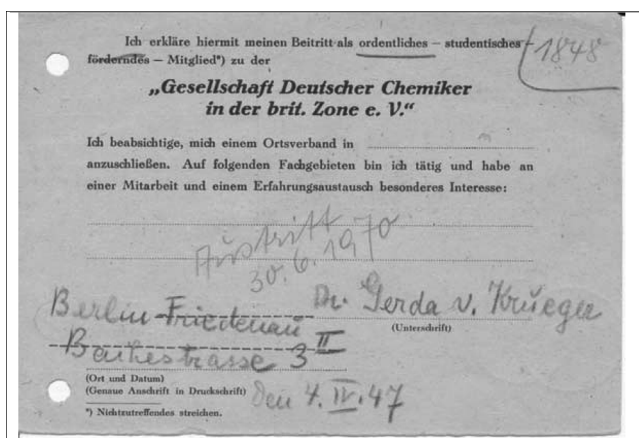 Ich erkläre hiermit meinen Beitritt als ordentliches — studentisches —
förderndes — Mitglied*) zu der
1848
„Gesellschaft Deutscher Chemiker
in der brit. Zone e. V.“
Ich beabsichtige, mich einem Ortsverband in
anzuschließen. Auf folgenden Fachgebieten bin ich tätig und habe an
einer Mitarbeit und einem Erfahrungsaustausch besonderes Interesse:
Austritt
30.6.1970
Berlin-Friedenau Dr. Gerda v. Krüeger
(Unterschrift)
3 II
(Ort und Datum)
(Genaue Anschrift in Druckschrift) den 4. IV. 47
*) Nichtzutreffendes streichen.